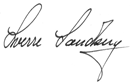 Sverre Sandberg